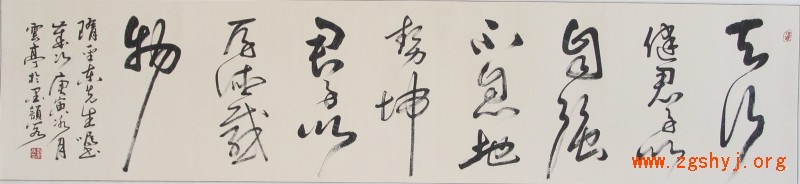 天行
健君子以
自强
不息地
势坤
君子以
厚德载
物
隋
先生嘱
庚寅冰月
云亭於墨韵
www.zgshyj.org